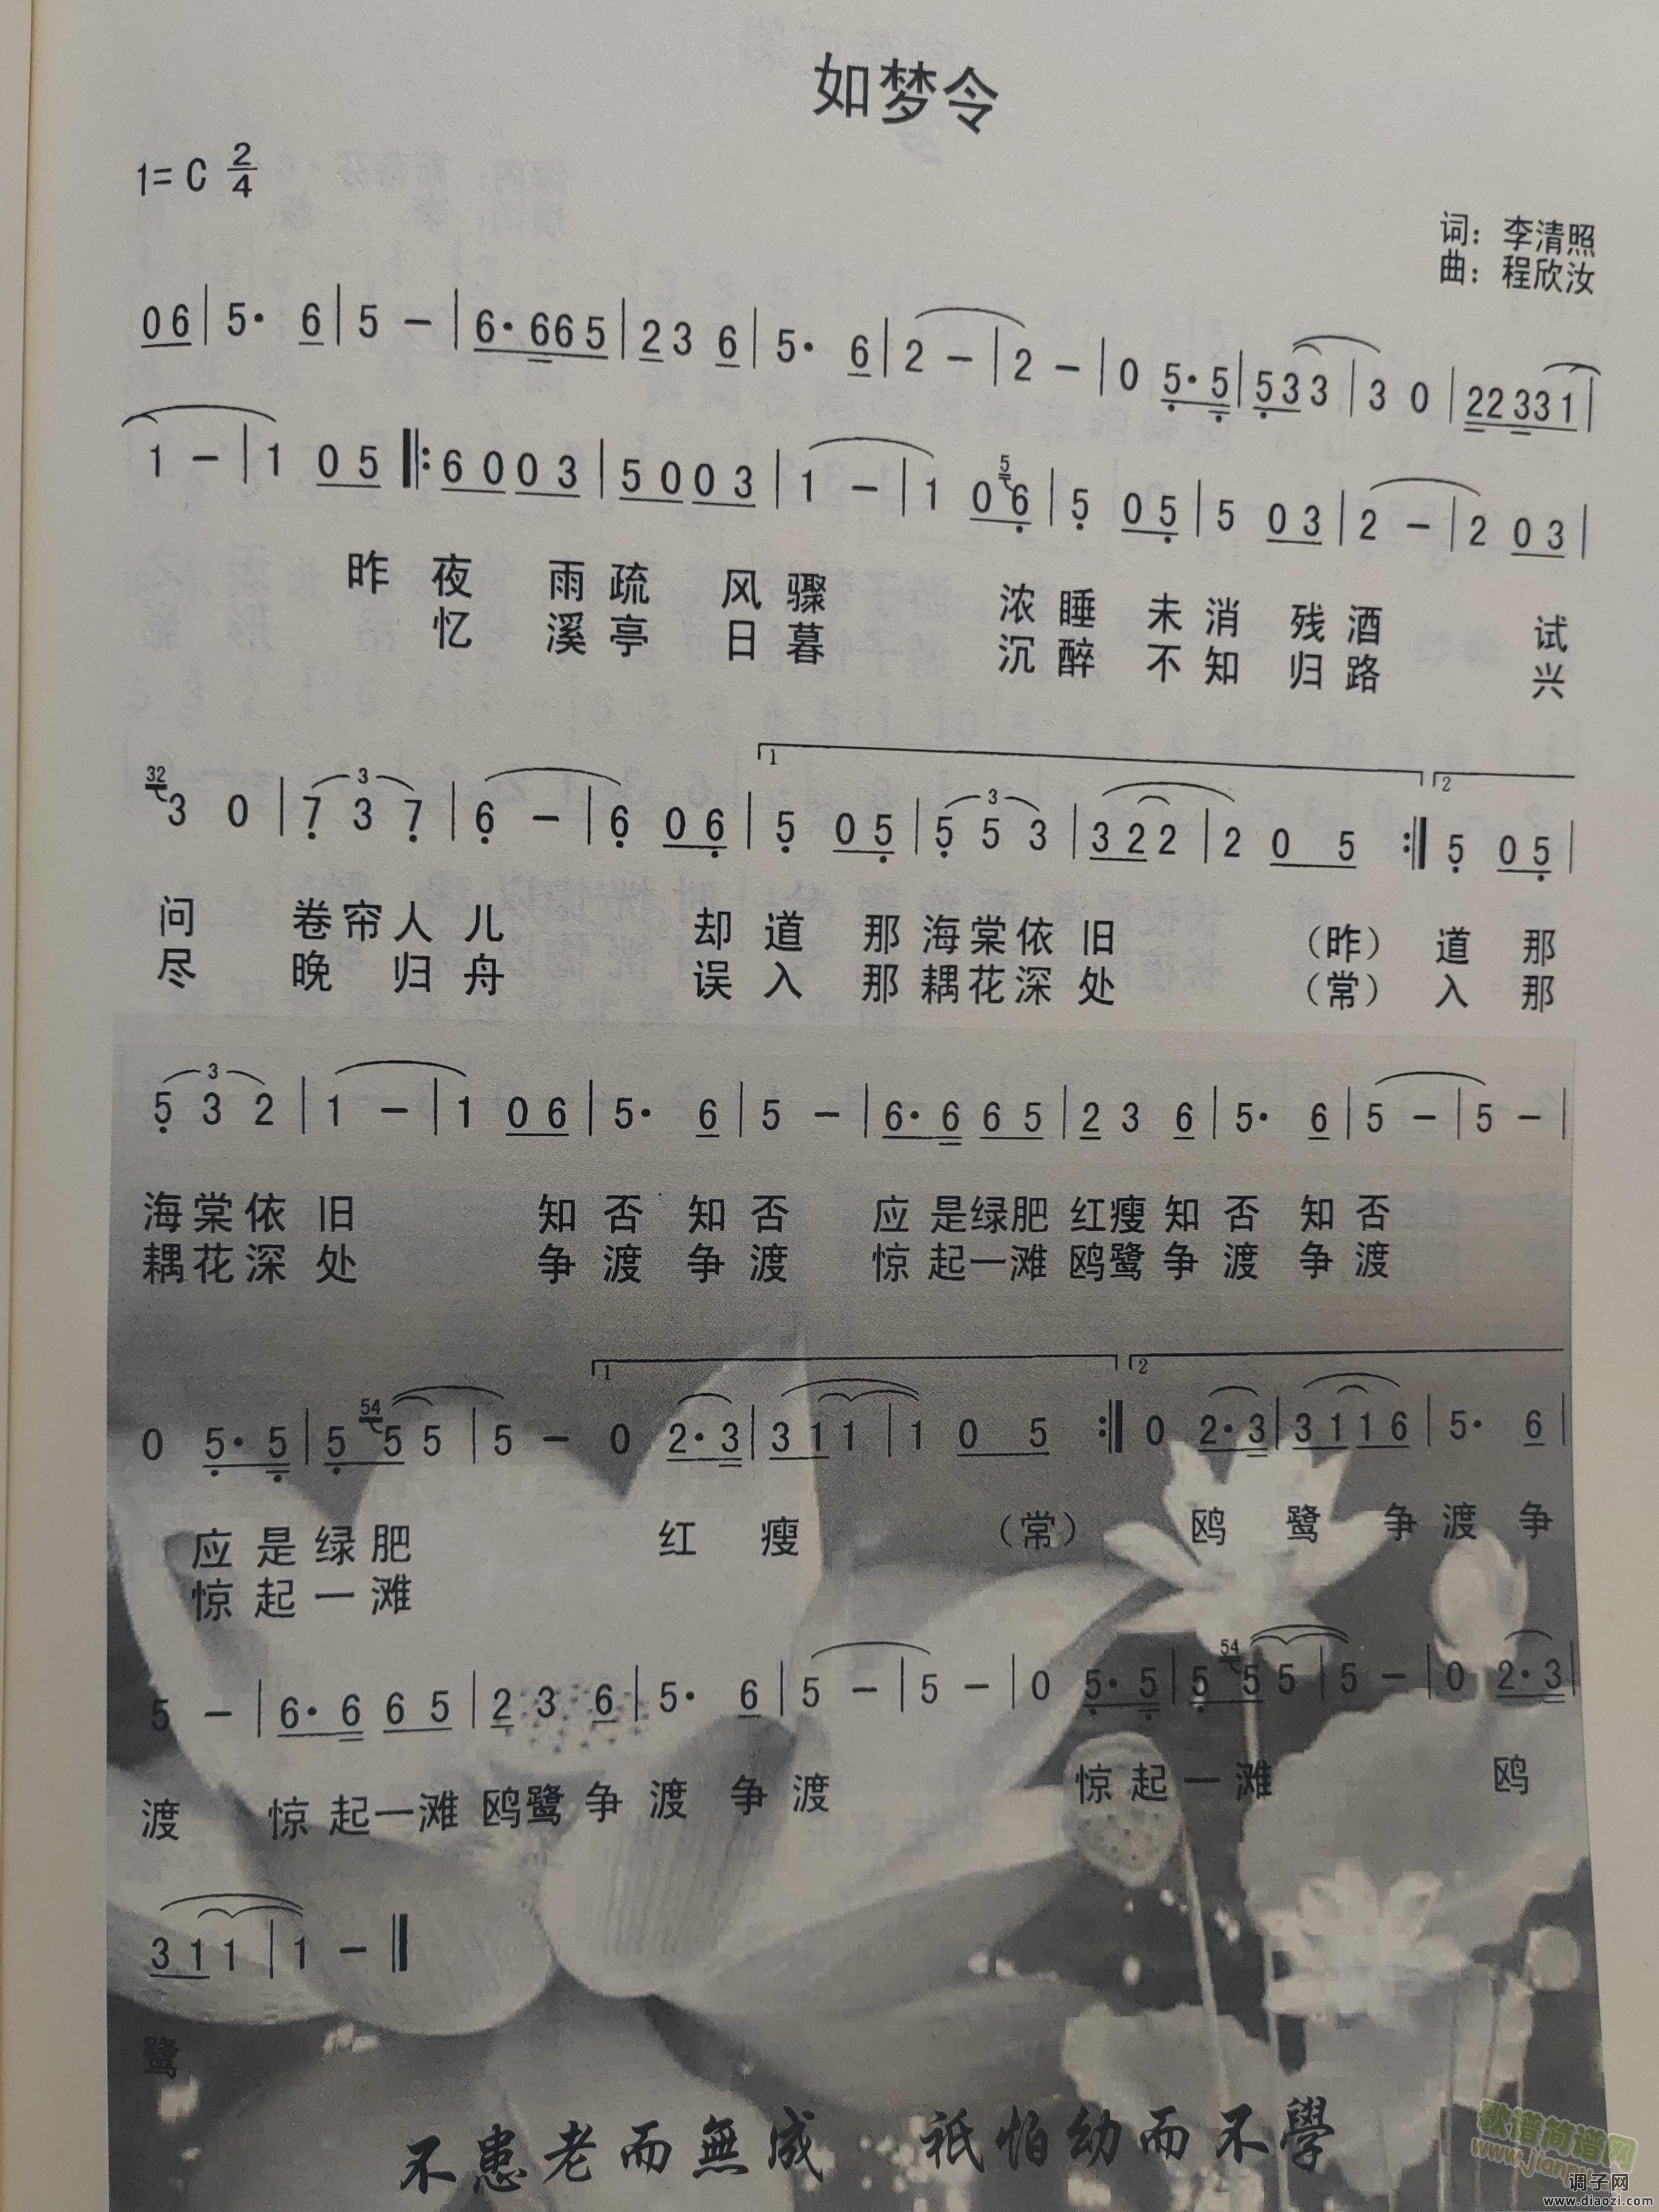 如梦令
1= C 2/4
词：李清照
曲：程欣汝
0 6 | 5· 6 | 5 － | 6· 6 6 5 | 2 3 6 | 5· 6 | 2 － | 2 － | 0 5·5 | 5 3 3 | 3 0 | 2 2 3 3 1 |
1 － | 1 0 5 |: 6 0 0 3 | 5 0 0 3 | 1 － | 1 0 5 6 | 5 0 5 | 5 0 3 | 2 － | 2 0 3 |
昨 夜 雨 疏 风 骤 浓 睡 未 消 残 酒 试
忆 溪 亭 日 暮 沉 醉 不 知 归 路 兴
32 3 0 | 7 3 7 | 6 － | 6 0 6 | 5 0 5 | 5 5 3 | 3 2 2 | 2 0 5 :| 5 0 5 |
问 卷 帘 人 儿 却 道 那 海 棠 依 旧 （昨） 道 那
尽 晚 归 舟 误 入 那 耦 花 深 处 （常） 入 那
5 3 2 | 1 － | 1 0 6 | 5· 6 | 5 － | 6· 6 6 5 | 2 3 6 | 5· 6 | 5 － | 5 － |
海 棠 依 旧 知 否 知 否 应 是 绿 肥 红 瘦 知 否 知 否
耦 花 深 处 争 渡 争 渡 惊 起 一 滩 鸥 鹭 争 渡 争 渡
0 5·5 | 5 54 5 5 | 5 － 0 2·3 | 3 1 1 | 1 0 5 :| 0 2·3 | 3 1 1 6 | 5· 6 |
应 是 绿 肥 红 瘦 （常） 鸥 鹭 争 渡 争
惊 起 一 滩
5 － | 6· 6 6 5 | 2 3 6 | 5· 6 | 5 － | 5 － | 0 5·5 | 5 54 5 5 | 5 － | 0 2·3 |
渡 惊 起 一 滩 鸥 鹭 争 渡 争 渡 惊 起 一 滩 鸥
3 1 1 | 1 － ‖
鹭
不患老而無成 祇怕幼而不學
歌谱简谱网
www.jianpu
调子网
www.diaozi.com